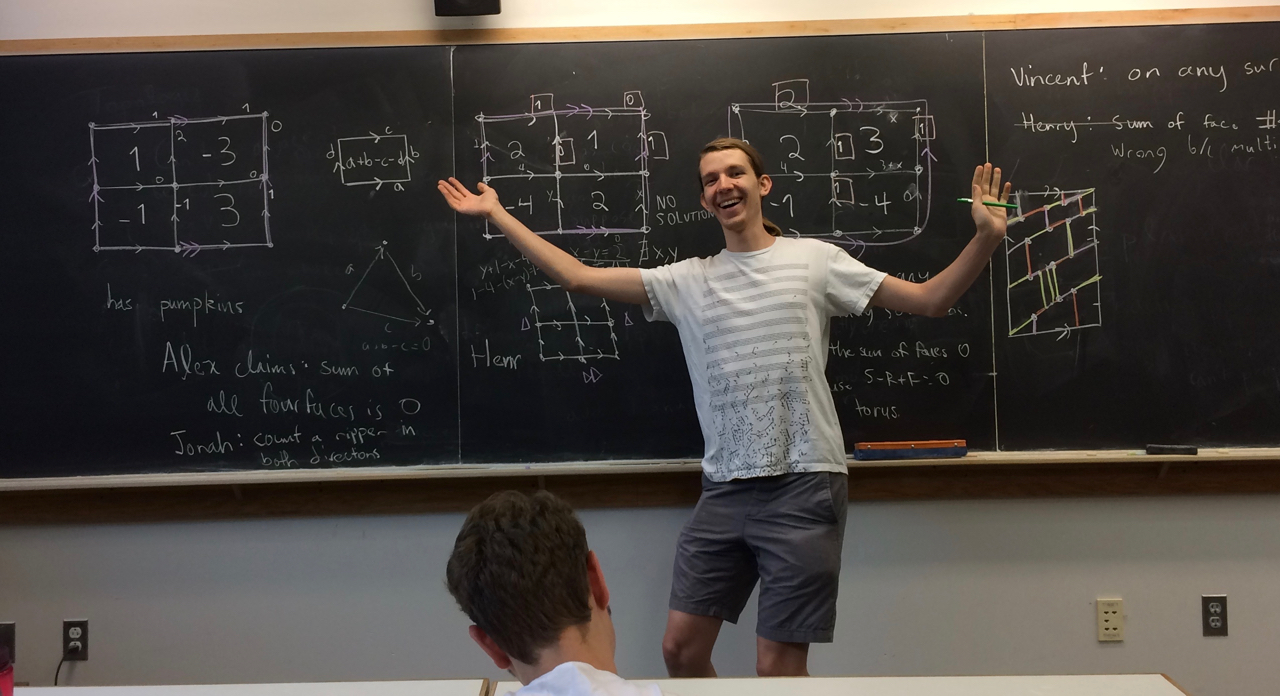 1 1
1 2 -3 0
0 0
-1 -1 3 1
has pumpkins
c
d a+b-c-d b
a
a b
c
a+b-c=0
Alex claims: sum of
all four faces is 0
Jonah: count a ripper in
both directions
1 0
2 1 1
-4 2
NO
SOLUTION
x,y
Henr
2
2 1 3 1
-1 1 -4
any
the sum of faces 0
S-R+F=0
torus.
Vincent: on any sur
Henry: Sum of face #
Wrong b/c multi